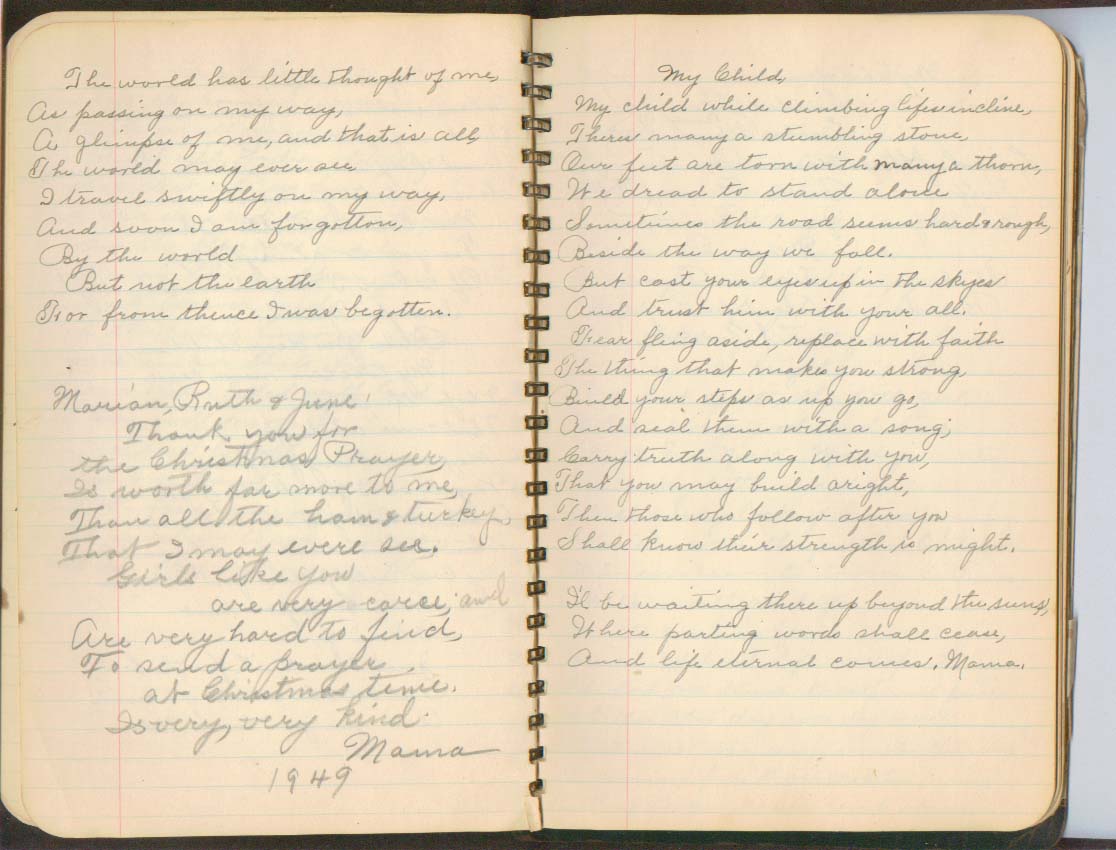 The world has little thought of me,
As passing on my way,
A glimpse of me, and that is all,
The world may ever see
I travel swiftly on my way,
And soon I am forgotten,
By the world
But not the earth
For from thence I was begotten.
Marian, Ruth & June!
Thank you for
the Christmas Prayer,
Is worth far more to me,
Than all the ham & turkey,
That I may evere see.
Girls like you
are very carce, and
Are very hard to find,
To send a prayer
at Christmas time.
Is very, very kind.
Mama
1949
My Child,
My child while climbing lifes incline,
Theres many a stumbling stone
Our feet are torn with many a thorn,
We dread to stand alone
Sometimes the road seems hard & rough,
Beside the way we fall.
But cast your eyes up in the skyes
And trust him with your all.
Fear fling aside, replace with faith
The thing that makes you strong
Build your steps as up you go,
And seal them with a song;
Carry truth along with you,
That you may build aright,
Then those who follow after you
Shall know their strength is might.
I'l be waiting there up beyond the suns,
Where parting words shall cease,
And life eternal comes. Mama.